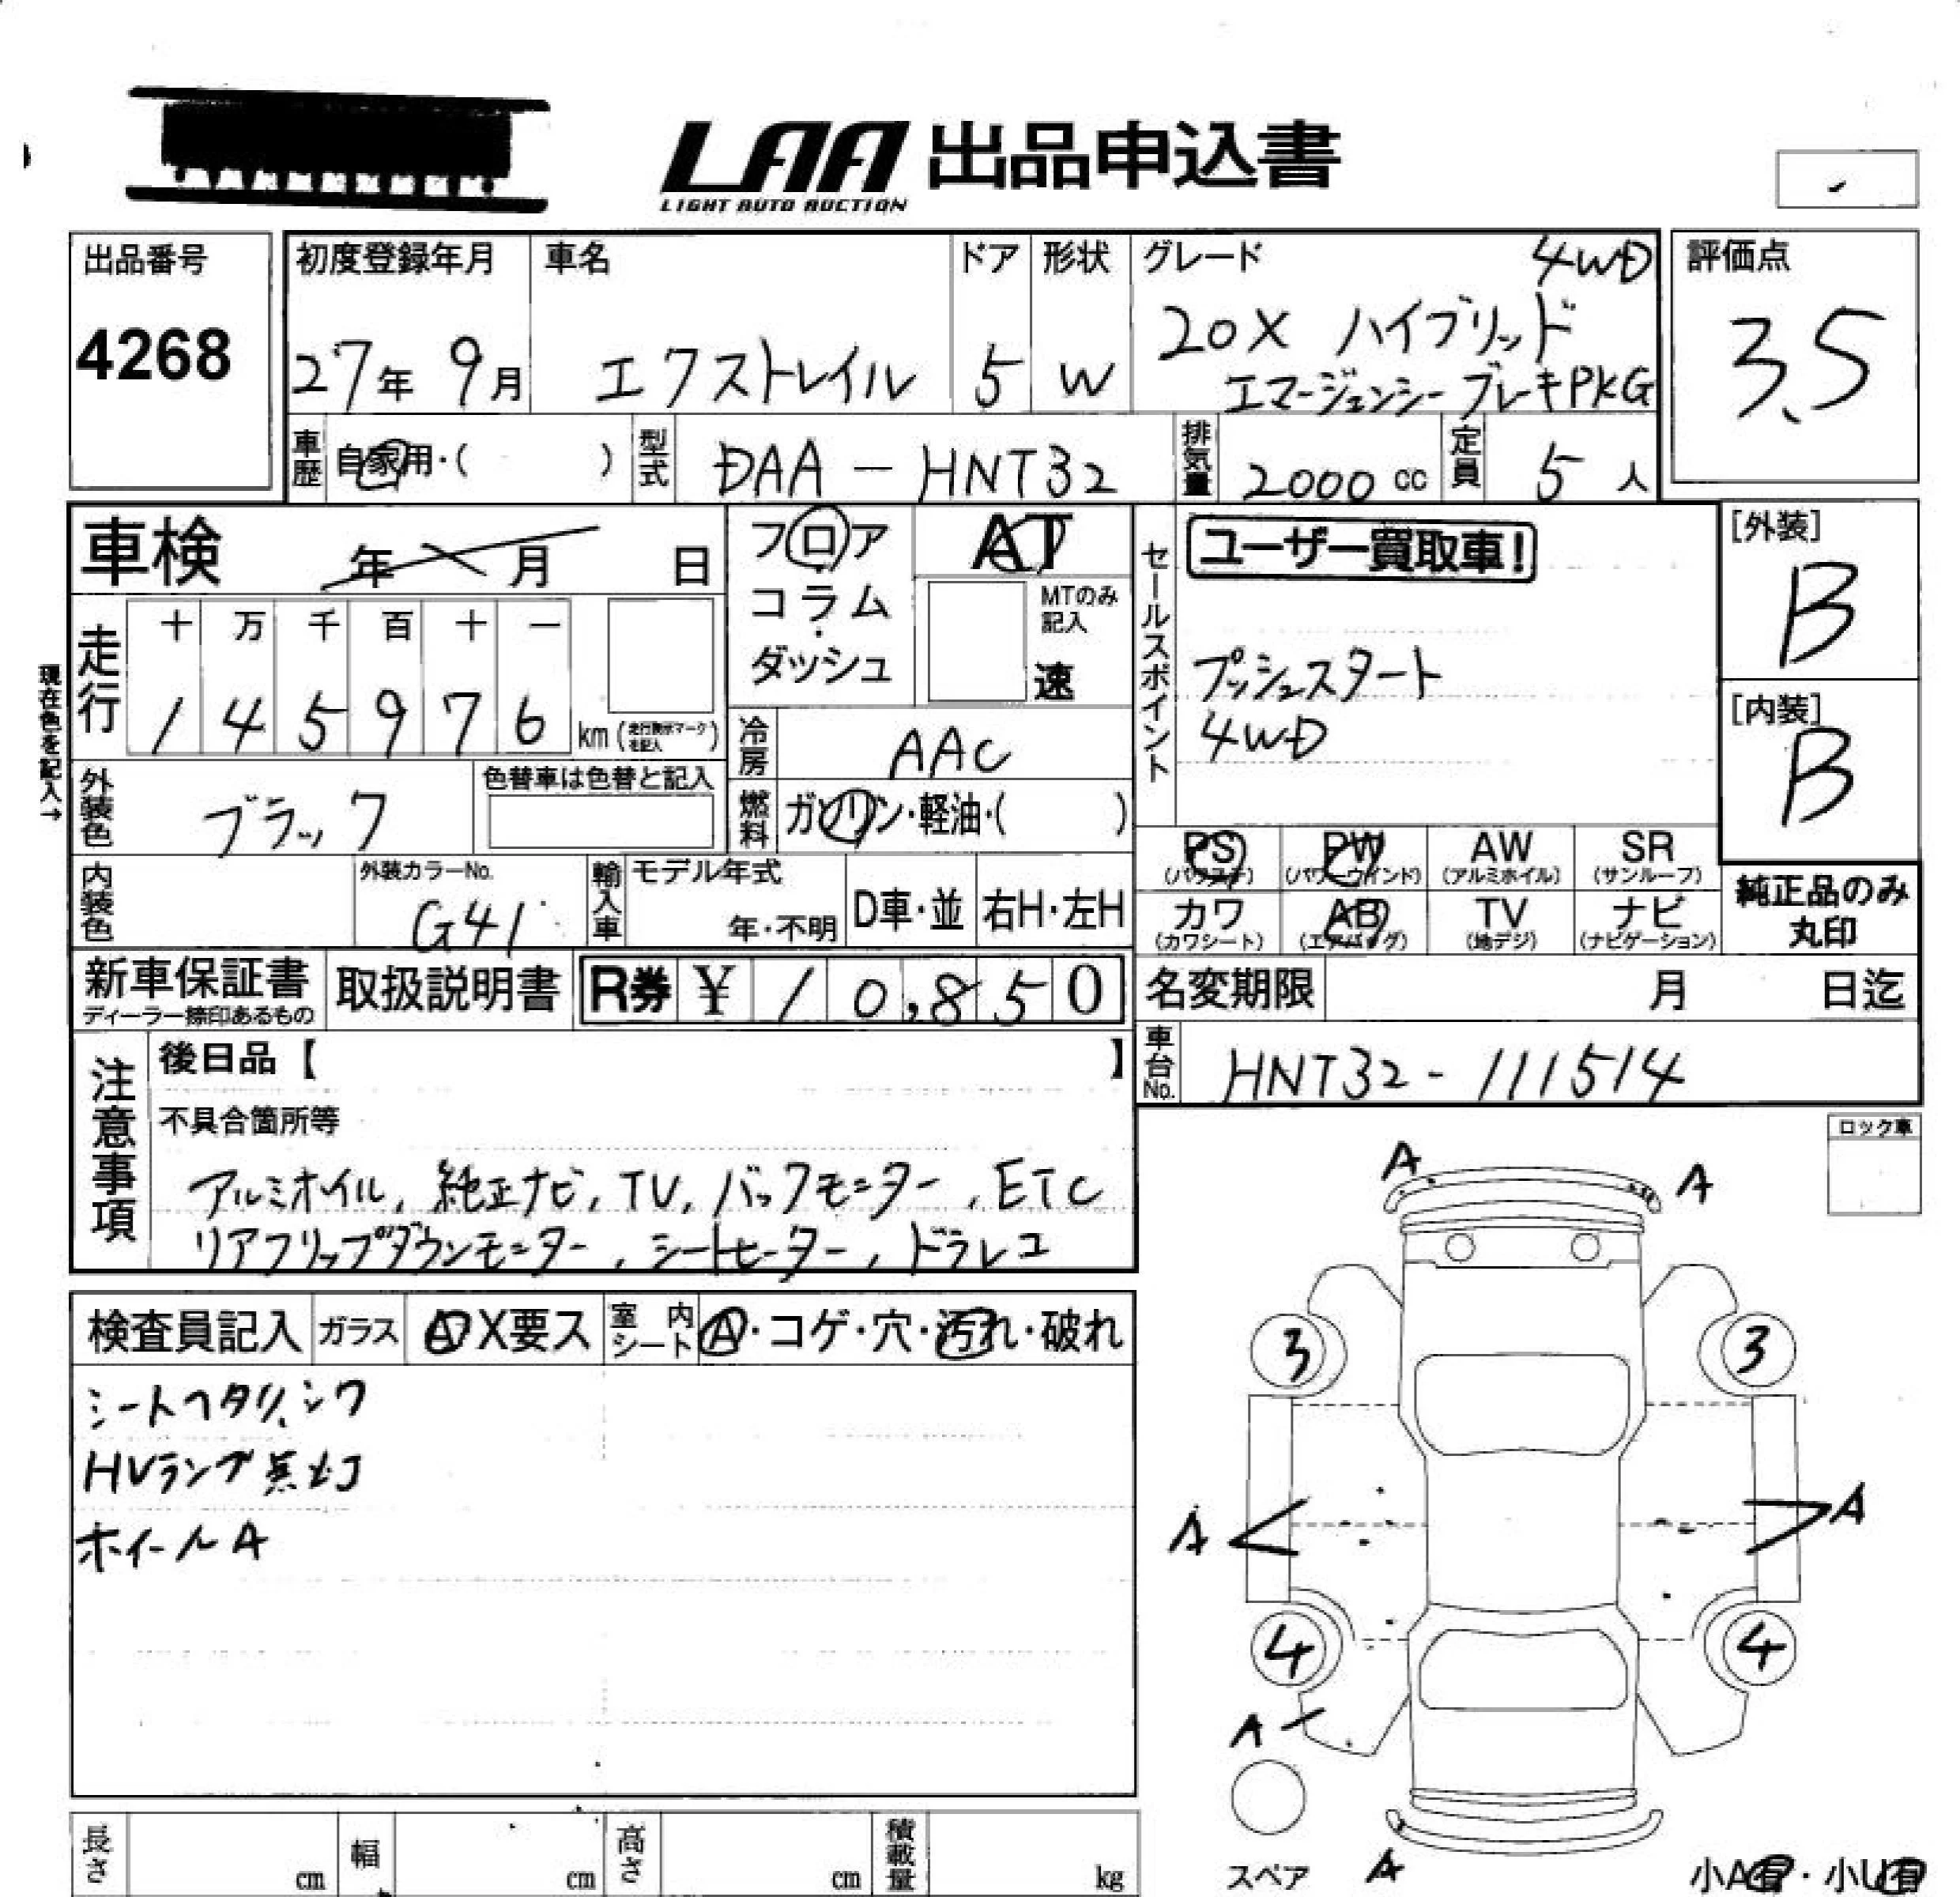 LAA 出品申込書
LIGHT AUTO AUCTION
出品番号
4268
初度登録年月
27年 9月
車名
エクストレイル
ドア
5
形状
W
グレード 4WD
20X ハイブリッド
エマージェンシーブレーキPKG
評価点
3.5
車歴 自家用・( )
型式 DAA-HNT32
排気量 2000 cc
定員 5 人
車検 年 月 日
現在色を記入→
走行
十 万 千 百 十 一
1 4 5 9 7 6 km
外装色 ブラック
色替車は色替と記入
内装色
外装カラーNo.
G41
輸入車
モデル年式
年・不明
D車・並
右H・左H
フロア
・
コラム
・
ダッシュ
AT
MTのみ
記入
速
冷房 AAC
燃料 ガソリン・軽油・( )
セールスポイント
ユーザー買取車!
プッシュスタート
4WD
[外装]
B
[内装]
B
PS (パワステ)
PW (パワーウインド)
AW (アルミホイル)
SR (サンルーフ)
カワ (カワシート)
AB (エアバッグ)
TV (地デジ)
ナビ (ナビゲーション)
純正品のみ
丸印
新車保証書
ディーラー捺印あるもの
取扱説明書
R券 ¥ 10,850
名変期限 月 日迄
車台No. HNT32-111514
注意事項
後日品【 】
不具合箇所等
アルミホイル, 純正ナビ, TV, バックモニター, ETC
リアフリップダウンモニター, シートヒーター, ドラレコ
ロック車
検査員記入
ガラス
A X要ス
室内シート
A・コゲ・穴・汚れ・破れ
シートヘタリ、シワ
HVランプ点灯
ホイールA
A
A
3
3
A
A
4
4
A
スペア
A
小A有・小U有
長さ cm
幅 cm
高さ cm
積載量 kg